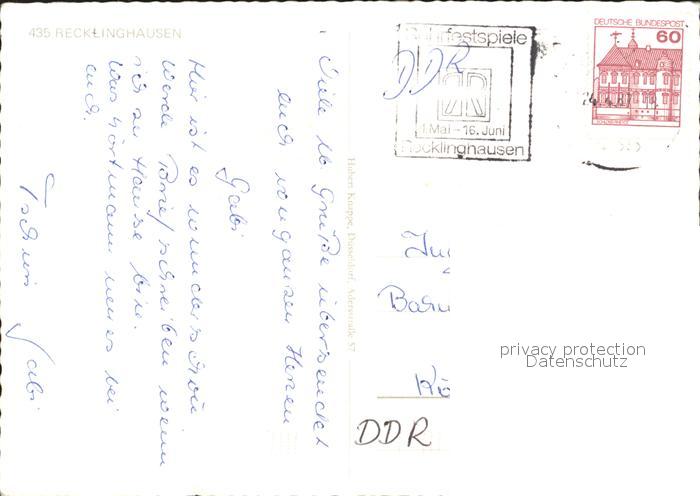 435 RECKLINGHAUSEN
Viele lb. Grüße übersendet
euch von ganzen Herzen
Gabi
Hier ist es wunderschön
werde Brief schreiben wenn
ich zu Hause bin.
Was hört man neues bei
euch.
Tschüß Gabi
Hubert Knappe, Düsseldorf, Adersstraße 57
DDR
Ruhrfestspiele
1. Mai - 16. Juni
Recklinghausen
DEUTSCHE BUNDESPOST
60
DDR
privacy protection
Datenschutz